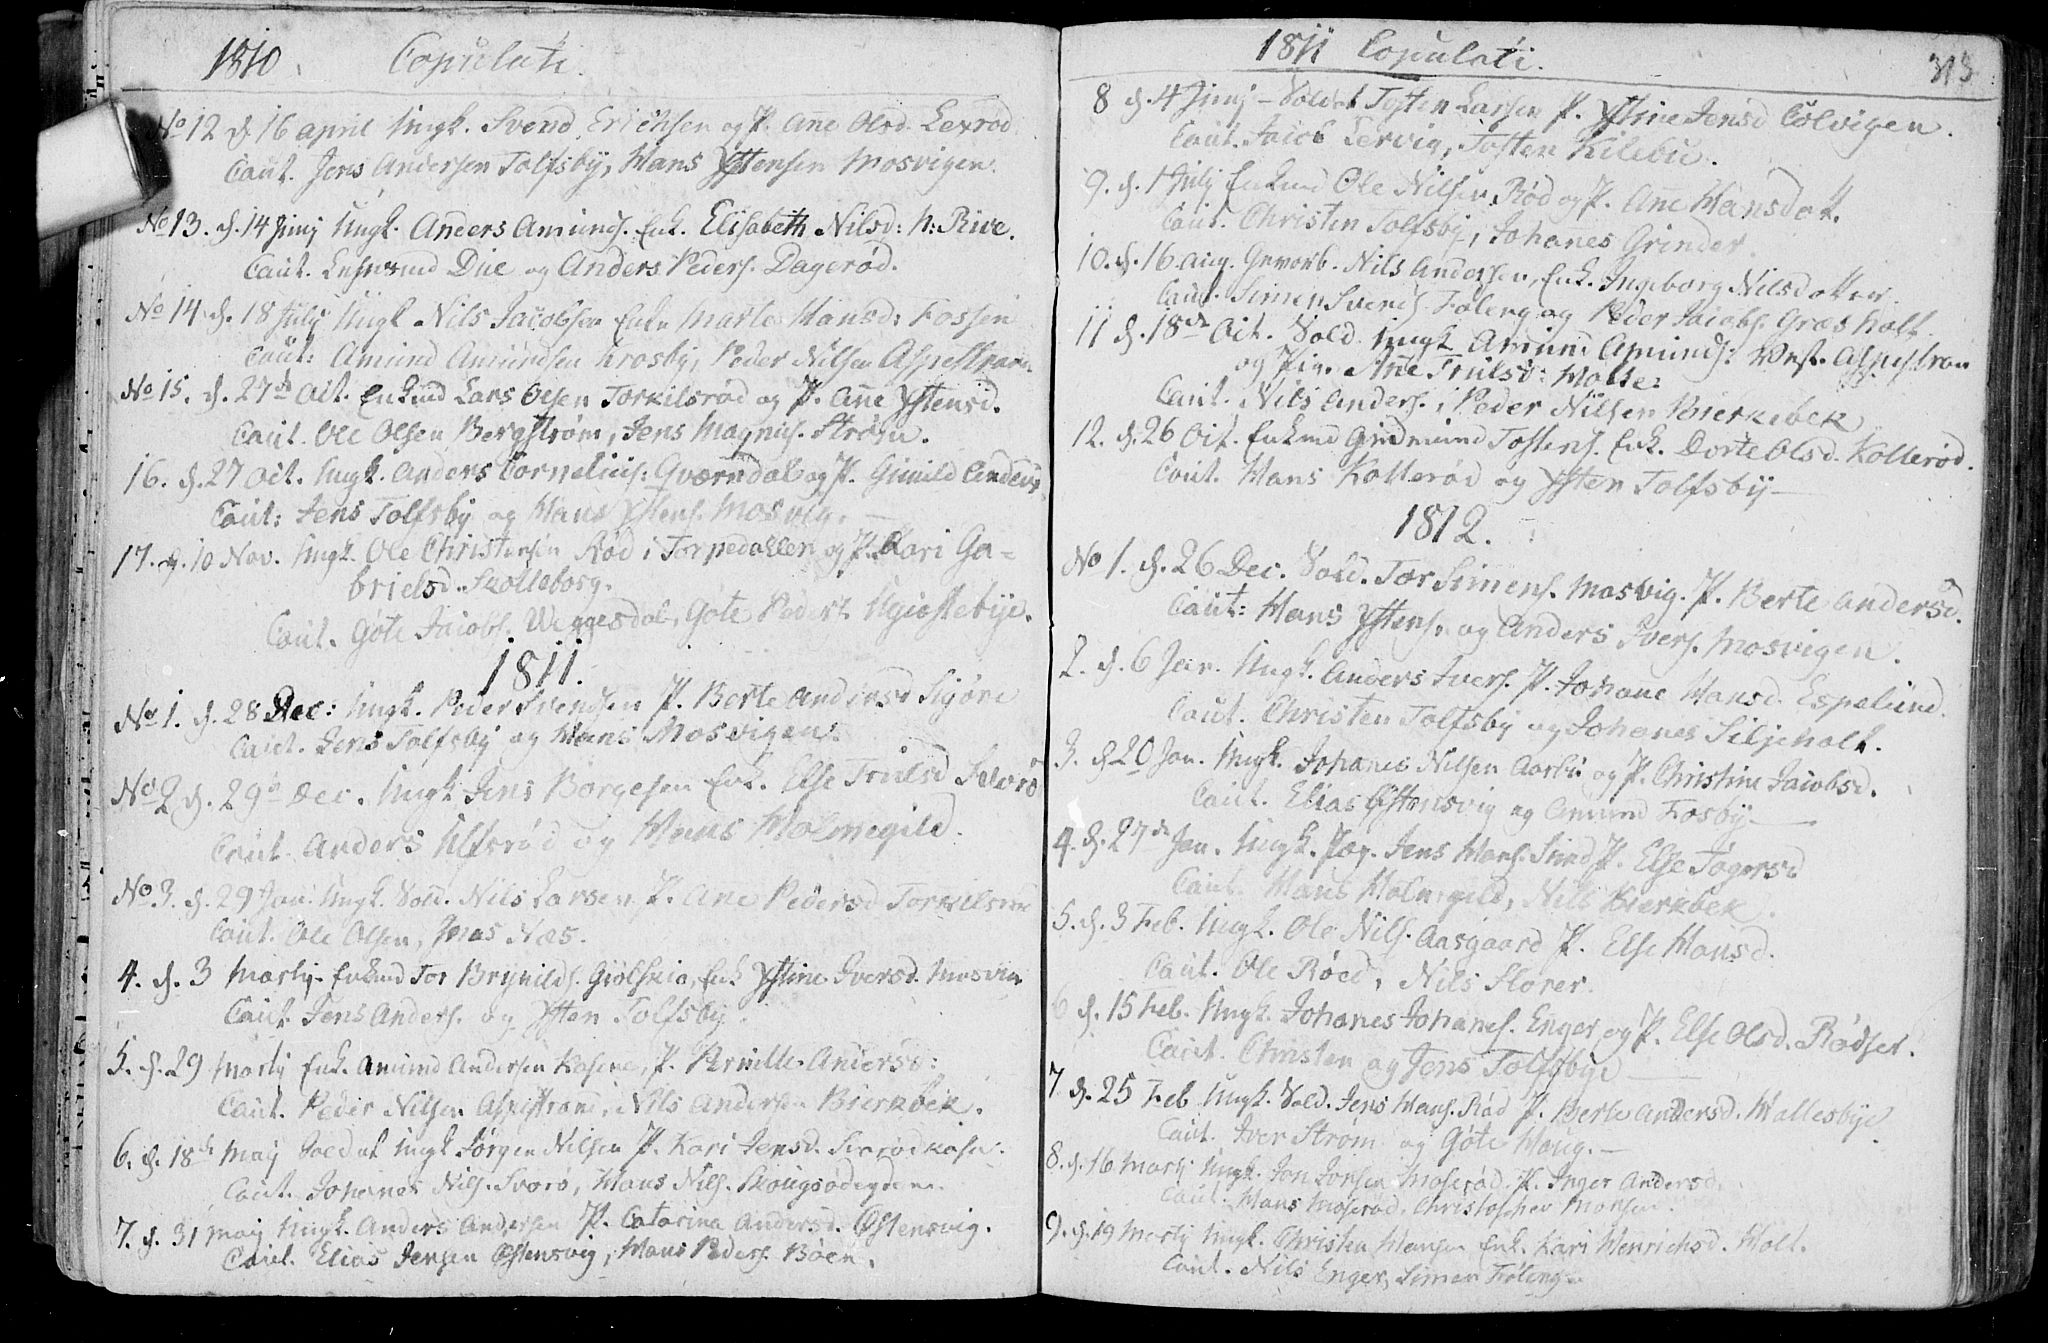 1810 Copulati.
No 12 d. 16 april Ungk. Svend Erichsen og P. Ane Olsd. Lexrød
Caut. Jens Andersen Tolfsby, Hans Ystensen Mosvigen.
No 13. d. 14 Junj Ungk. Anders Amunds. Enk. Elisabeth Nilsd: N: Rive.
Caut. Lehnsmd Due og Anders Peders. Dagerød.
No 14 d. 18 July Ungk Nils Jacobsen Enke Marte Hansd: Fossen
Caut: Amund Amundsen Krosby, Peder Nilsen Aspestrand.
No 15. d. 27de Oct. Enkmd Lars Olsen Torkilsrød og P. Ane Ystensd.
Caut. Ole Olsen Bergstrøm, Jens Magnus. Strøm.
16. d. 27 Oct. Ungk. Anders Cornelius: Qværndal og P. Gunild Anders
Caut: Jens Tolfsby og Hans Ystens. Mosvig.
17. d. 10 Nov. Ungk. Ole Christensen Rød i Torpedallen og P. Kari Ga=
brielsd. Skolleborg.
Caut. Gøte Jacobs. Weggesdal, Gøte Peders.
1811.
No 1. d. 28 Dec: Ungk. Peder Svendsen P. Berte Andersd
Caut. Jens Tolfsby og Hans Mosvigen.
No 2 d. 29de Dec. Ungk Jens Borgesen Enk. Else Trulsd Svorø
Caut. Anders Ulfsrød og Hans Holmegild.
No 3. d. 29 Jan. Ungk. Sold. Nils Larsen P. Ane Pedersd Torkilsrud
Caut. Ole Olsen, Jonas Næs.
4. d. 3 Martj. Enkmd Tor Brynilds. Giølskiø, Enk Ystine Iversd. Mosvig
Caut. Jens Anders. og Ysten Tolfsby.
5. d. 29 Martj Enk. Amund Andersen Kasene, P. Pernille Andersd:
Caut. Peder Nilsen Aspestrand, Nils Andersen Bierkebek.
6. d. 18de Maj Soldat Ungk Jørgen Nilsen P. Kari Jensd.
Caut. Johanes Nils. Svorø, Hans Nils. Skougsødegden.
7. d. 31 Maj Ungk. Anders Andersen P. Catarina Andersd. Østensvig.
Caut. Elias Jensen Østensvig, Hans Peders. Bøen.
1811 Copulati.
313
8 d. 4 Junj - Soldat Tosten Larsen P. Ystine Jensd Colvigen.
Caut. Jacob Lervig, Tosten Kilebu.
9. d. 1 Julj Enkmd Ole Nilsen Rød og P. Ane Hansdott.
Caut. Christen Tolfsby, Johanes Grinder.
10. d. 16 Aug. Gevorb. Nils Andersen, Enk. Ingeborg Nilsdotter.
Caut. Simen Svends Føleng og Peder Jacobs. Græsholt.
11 d. 18de Oct. Sold. Ungk Amund Amunds: Vest. Aspestran
og Pig. Ane Trulsd: Holte:
Caut. Nils Anders. i Peder Nilsen Bierkebek
12. d. 26 Oct. Enkmd Gudmund Tostens. Enk. Dorte Olsd. Kollerød.
Caut. Hans Kollerød og Ysten Tolfsby -
1812.
No 1. d. 26 Dec. Sold. Tor Simens. Mosvig. P. Berte Andersd.
Caut: Hans Ystens. og Anders Ivers. Mosvigen.
2. d. 6 Jan. Ungk. Anders Ivers. P. Johane Hansd. Espelund.
Caut. Christen Tolfsby og Johanes Siljeholt.
3. d 20 Jan. Ungk. Johanes Nilsen Aarbu og P. Christine Jacobsd.
Caut. Elias Østensvig og Amund Fosby -
4. d. 27de Jan. Ungk. Jens Hans. Sund P. Else Tøgersd
Caut. Hans Holmegild, Nils Bierkebek.
5. d. 3 Feb. Ungk. Ole Nils. Aasgaard P. Else Hansd.
Caut. Ole Røed, Nils Slorer.
6 d. 15 Feb. Ungk. Johanes Johanes. Enger og P. Else Olsd. Rødset.
Caut. Christen og Jens Tolfsbye
7 d. 25 Feb Ungk. Sold. Jens Hans. Rød P. Berte Andersd. Hallesbye
Caut. Iver Strøm og Gøte Houg. -
8. d. 16 Martj Ungk. Jon Jonsen Moserød. P. Inger Andersd.
Caut. Hans Moserød, Christopher Monsen.
9. d. 19 Martj Ungk. Christen Hansen Enk. Kari Henrichsd. Holt.
Caut. Nils Enger, Simen Føleng.